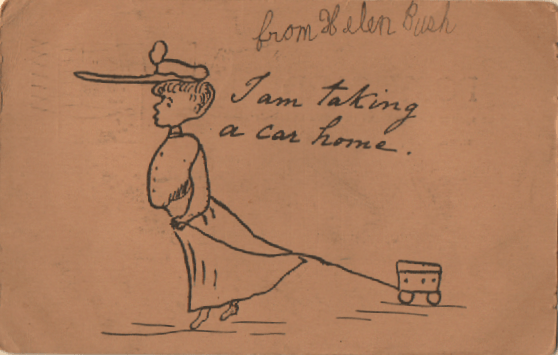 from Helen Bush
I am taking
a car home.